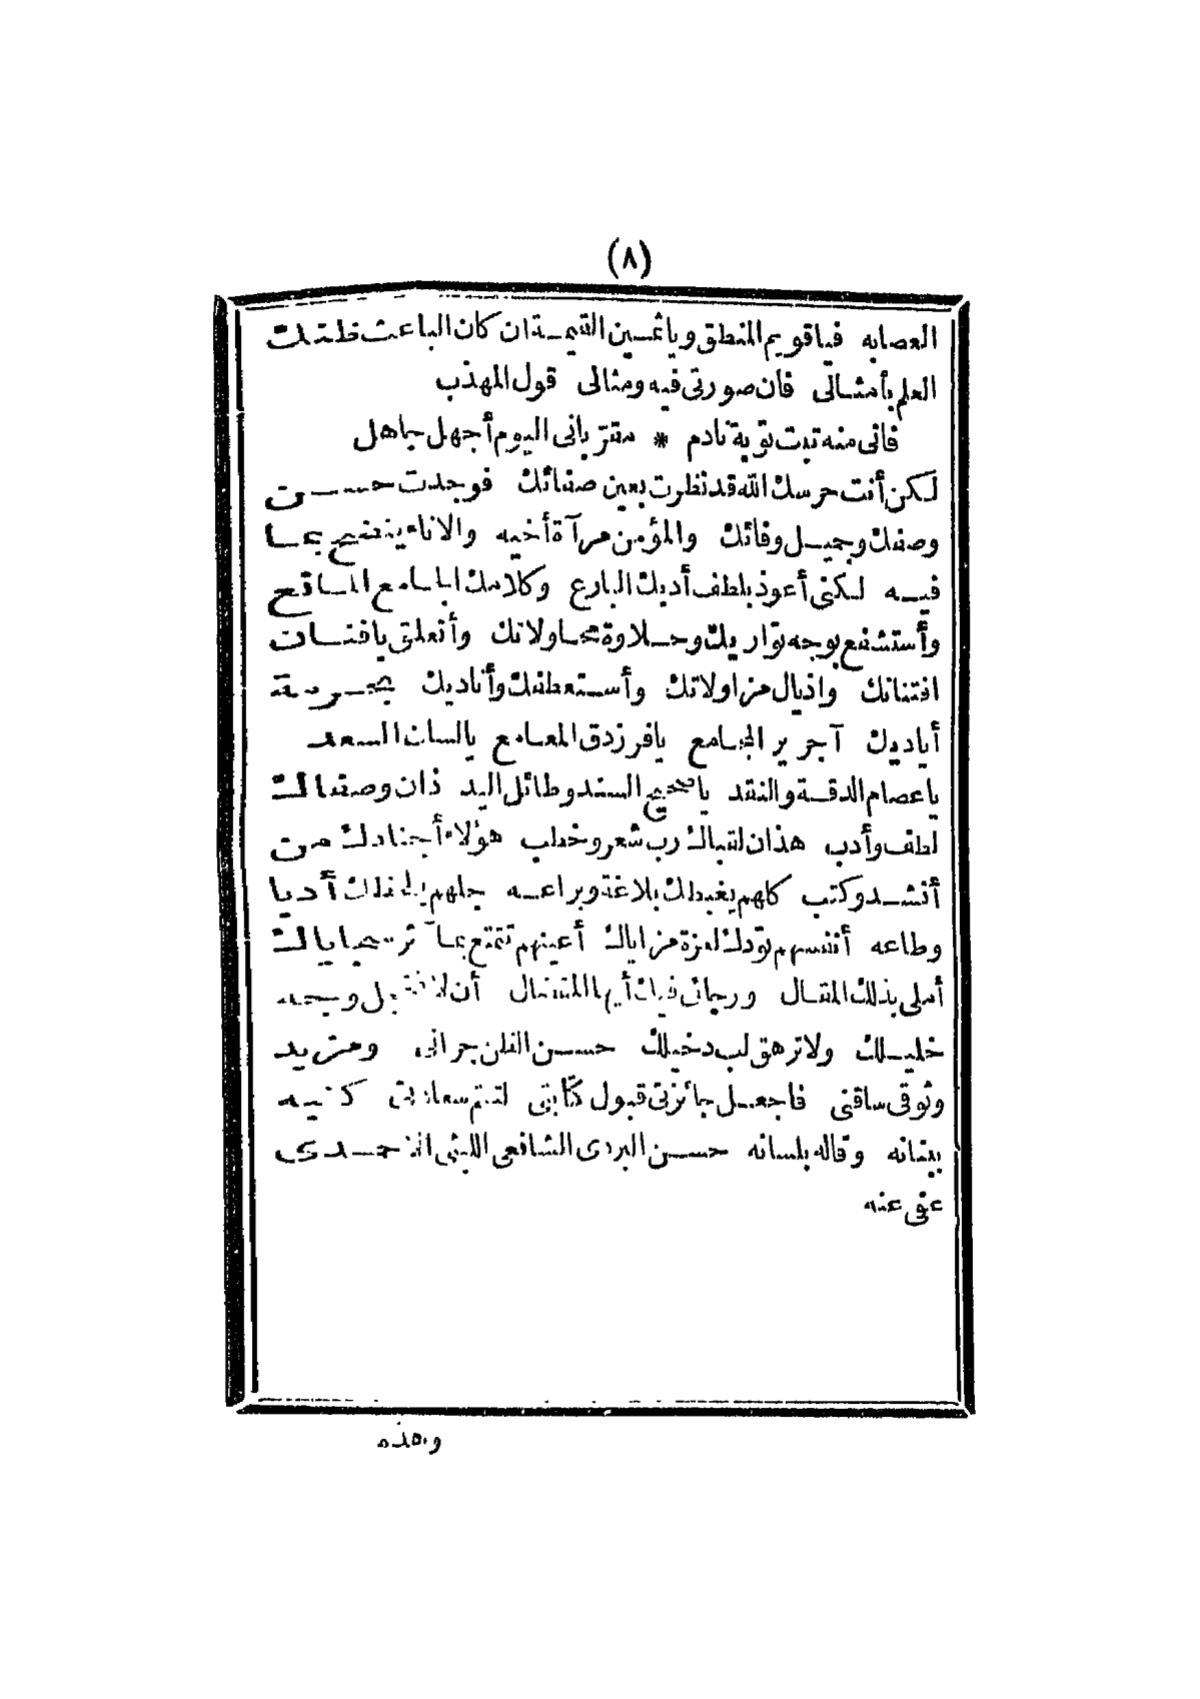 (٨)
العصابه فياقويم المنطق وياثمين القيمة ان كان الباعث ظنك
العلم بأمثالى فان صورتى فيه ومثالى قول المهذب
فانى منه تبت توبة نادم * مقرّ بانى اليوم أجهل جاهل
لكن أنت حرسك الله قد نظرت بعين صفائك فوجدت حسن
وصفك وجميل وفائك والمؤمن مرآة أخيه والاناء ينضح بما
فيه لكنى أعوذ بلطف أدبك البارع وكلامك الجامع الماتع
وأستشفع بوجه تواريك وحلاوة محاولاتك وأتعلق بافنات
افتنانك واذيال مزاولاتك وأستعطفك وأناديك بحرمة
أياديك آجرير المجامع يافرزدق المعامع يالسان السعد
ياعصام الدقة والنقد ياصحيح السند وطائل اليد ذان وصفاك
لطف وأدب هذان لقباك رب شعر وخطب هؤلاء أجنادك من
أنشد وكتب كلهم يغبطك بلاغة وبراعه جلهم يلحظك أدبا
وطاعه أنفسهم تودك لعزة مزاياك أعينهم تتمتع بمآثر سجاياك
أملى بذلك المقال ورجائى فيك أيها المفضال أن لا تخجل وجه
خليلك ولا ترهق لب دخيلك حسن الظن جرانى ومزيد
وثوقى ساقنى فاجعل جائزتى قبول كتابتى لتتم سعادتى كتبه
ببنانه وقاله بلسانه حسن البردى الشافعى الليثى الاحمدى
عفى عنه
وهذه